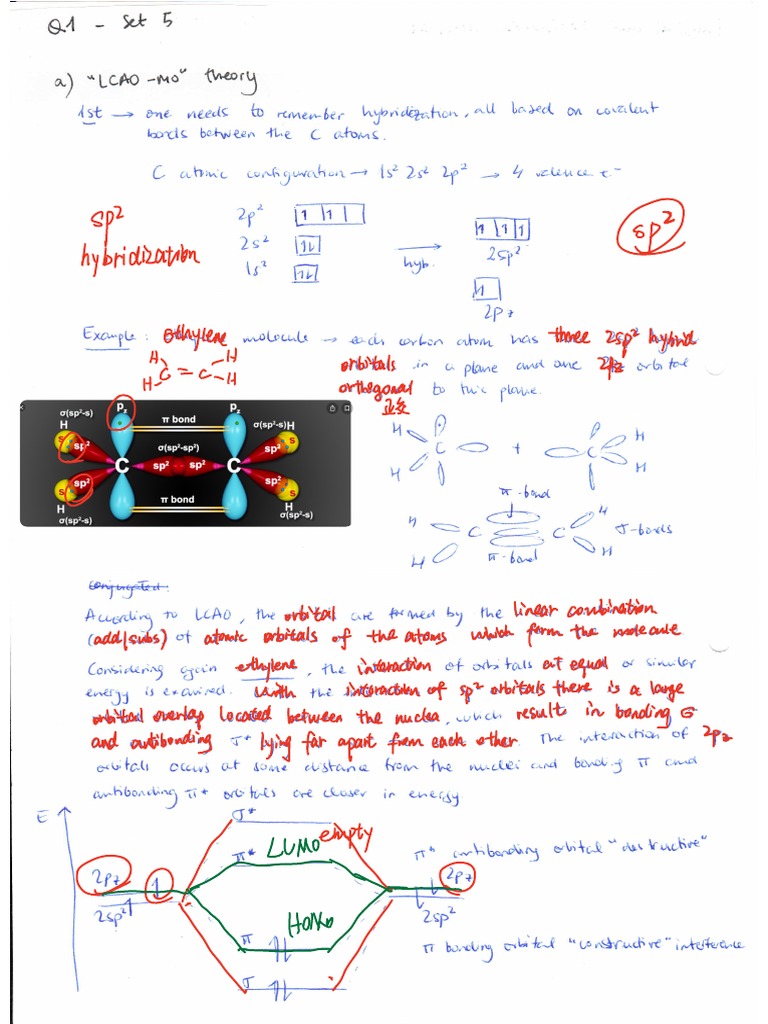 Q1 - Set 5
a) "LCAO-MO" theory
1st → one needs to remember hybridization, all based on covalent
bonds between the C atoms.
C atomic configuration → 1s² 2s² 2p² → 4 valence e⁻
sp²
hybridization
2p²
2s²
1s²
hyb.
2sp²
2pz
sp²
Example: ethylene molecule → each carbon atom has three 2sp² hybrid
orbitals in a plane and one 2pz orbital
orthogonal to this plane.
正交
H H
C = C
H H
pz pz
σ(sp²-s) π bond σ(sp²-s)
H H
s sp² σ(sp²-sp²) sp² s
C sp² sp² C
s sp² sp² s
H π bond H
σ(sp²-s) σ(sp²-s)
H C + C H
H H
π-bond
H C C H σ-bonds
H π-bond H
conjugated:
According to LCAO, the orbital are formed by the linear combination
(add/subs) of atomic orbitals of the atoms which form the molecule
Considering again ethylene, the interaction of orbitals at equal or similar
energy is examined. With the interaction of sp² orbitals there is a large
orbital overlap located between the nuclea, which result in bonding σ
and antibonding σ* lying far apart from each other. The interaction of 2pz
orbitals occurs at some distance from the nuclei and bonding π and
antibonding π* orbitals are closer in energy
E
σ*
LUMO empty
π*
π* antibonding orbital "destructive"
2pz 2pz
2sp² 2sp²
HOMO
π
π bonding orbital "constructive" interference
σ